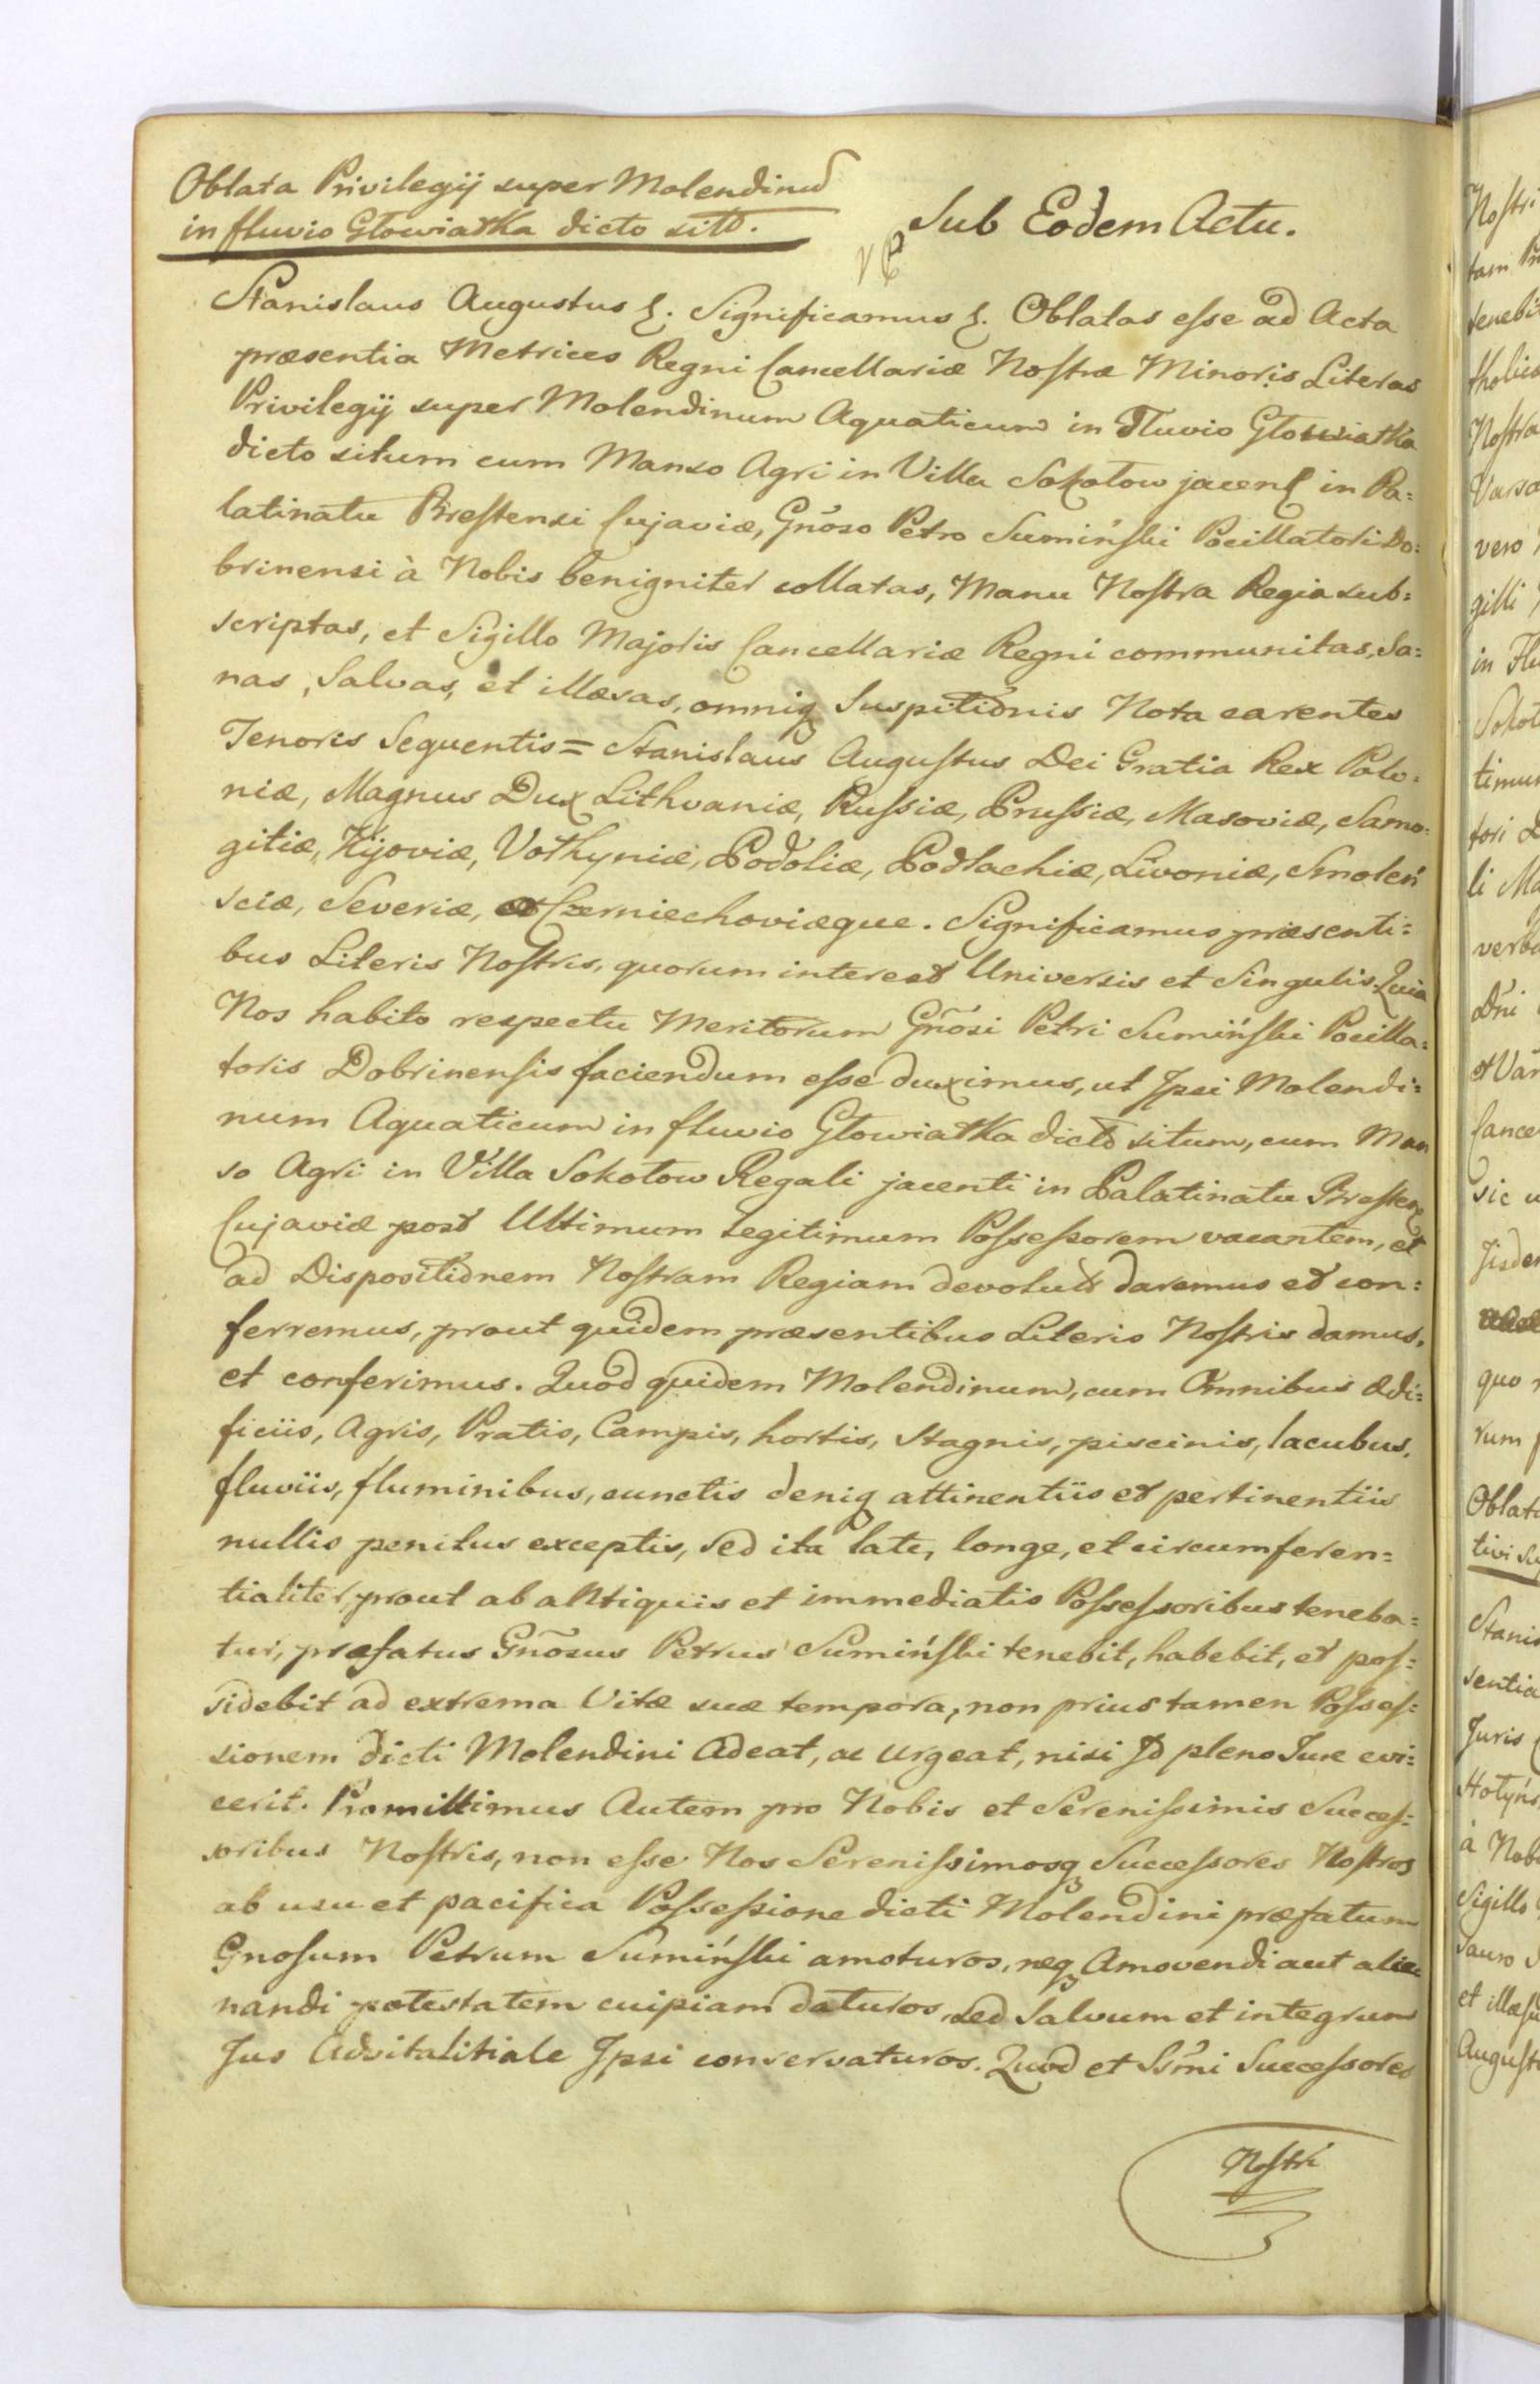 Oblata Privilegij super Molendinu
in fluvio Głowiatka dicto sito.
Sub Eodem Actu.
Stanislaus Augustus &. Significamus &. Oblatas esse ad Acta
præsentia Metrices Regni Cancellariæ Nostræ Minoris Literas
Privilegij super Molendinum Aquaticum in Fluvio Głowiatka
dicto situm cum Manso Agri in Villa Sokołow jacen in Pa:
latinatu Brestensi Cujaviæ, Gnõso Petro Sumiński Pocillatori Do:
brinensi à Nobis benigniter collatas, Manu Nostra Regia sub:
scriptas, et Sigillo Majoris Cancellariæ Regni communitas, Sa:
nas, Salvas, et illæsas, omniq Suspitionis Nota carentes
Tenoris Sequentis = Stanislaus Augustus Dei Gratia Rex Polo:
niæ, Magnus Dux Lithvaniæ, Russiæ, Prussiæ, Masoviæ, Samo:
gitiæ, Kijoviæ, Vołhyniæ, Podoliæ, Podlachiæ, Livoniæ, Smoleń
sciæ, Severiæ, Czerniechoviæque. Significamus præsenti:
bus Literis Nostris, quorum interest Universis et Singulis. Quia
Nos habito respectu Meritorum Gnõsi Petri Sumiński Pocilla:
toris Dobrinensis faciendum esse duximus, ut Ipsi Molendi:
num Aquaticum in fluvio Głowiatka dicto situm, cum Man
so Agri in Villa Sokołow Regali jacenti in Palatinatu Bresten
Cujaviæ post Ultimum Legitimum Possessorem vacantem, et
ad Dispositionem Nostram Regiam devolut daremus et con:
ferremus, prout quidem præsentibus Literis Nostris damus,
et conferimus. Quod quidem Molendinum, cum Omnibus ædi:
ficiis, Agris, Pratis, Campis, hortis, Stagnis, piscinis, lacubus,
fluviis, fluminibus, cunctis deniq attinentiis et pertinentiis
nullis penitus exceptis, sed ita late, longe, et circumferen:
tialiter, prout ab aNtiquis et immediatis Possessoribus teneba:
tur, præfatus Gnõsus Petrus Sumiński tenebit, habebit, et pos:
sidebit ad extrema Vitæ suæ tempora, non prius tamen Posses:
sionem dicti Molendini Adeat, ac Urgeat, nisi Id pleno Jure evi:
cerit. Promittimus Autem pro Nobis et Serenissimis Succes:
soribus Nostris, non esse Nos Serenissimosq Successores Nostros
ab usu et pacifica Possessione dicti Molendini præfatum
Gnosum Petrum Sumiński amoturos, neq Amovendi aut alie
nandi potestatem cuipiam daturos, sed Salvum et integrum
Jus Advitalitiale Ipsi conservaturos. Quod et Ssm̃i Successores
Nostri
Nostri
tam
tenebi
tholica
Nostra
Varso
vero
gilli
in Flu
Sokoł
timum
tori D
li Ma
verbo
Dñi
et Var
Cance
sic
Jisdem
quo
rum
Oblata
tivi
Stanis
sentia
Juris
à Nob
Sigillo
et illæsa
Augusto